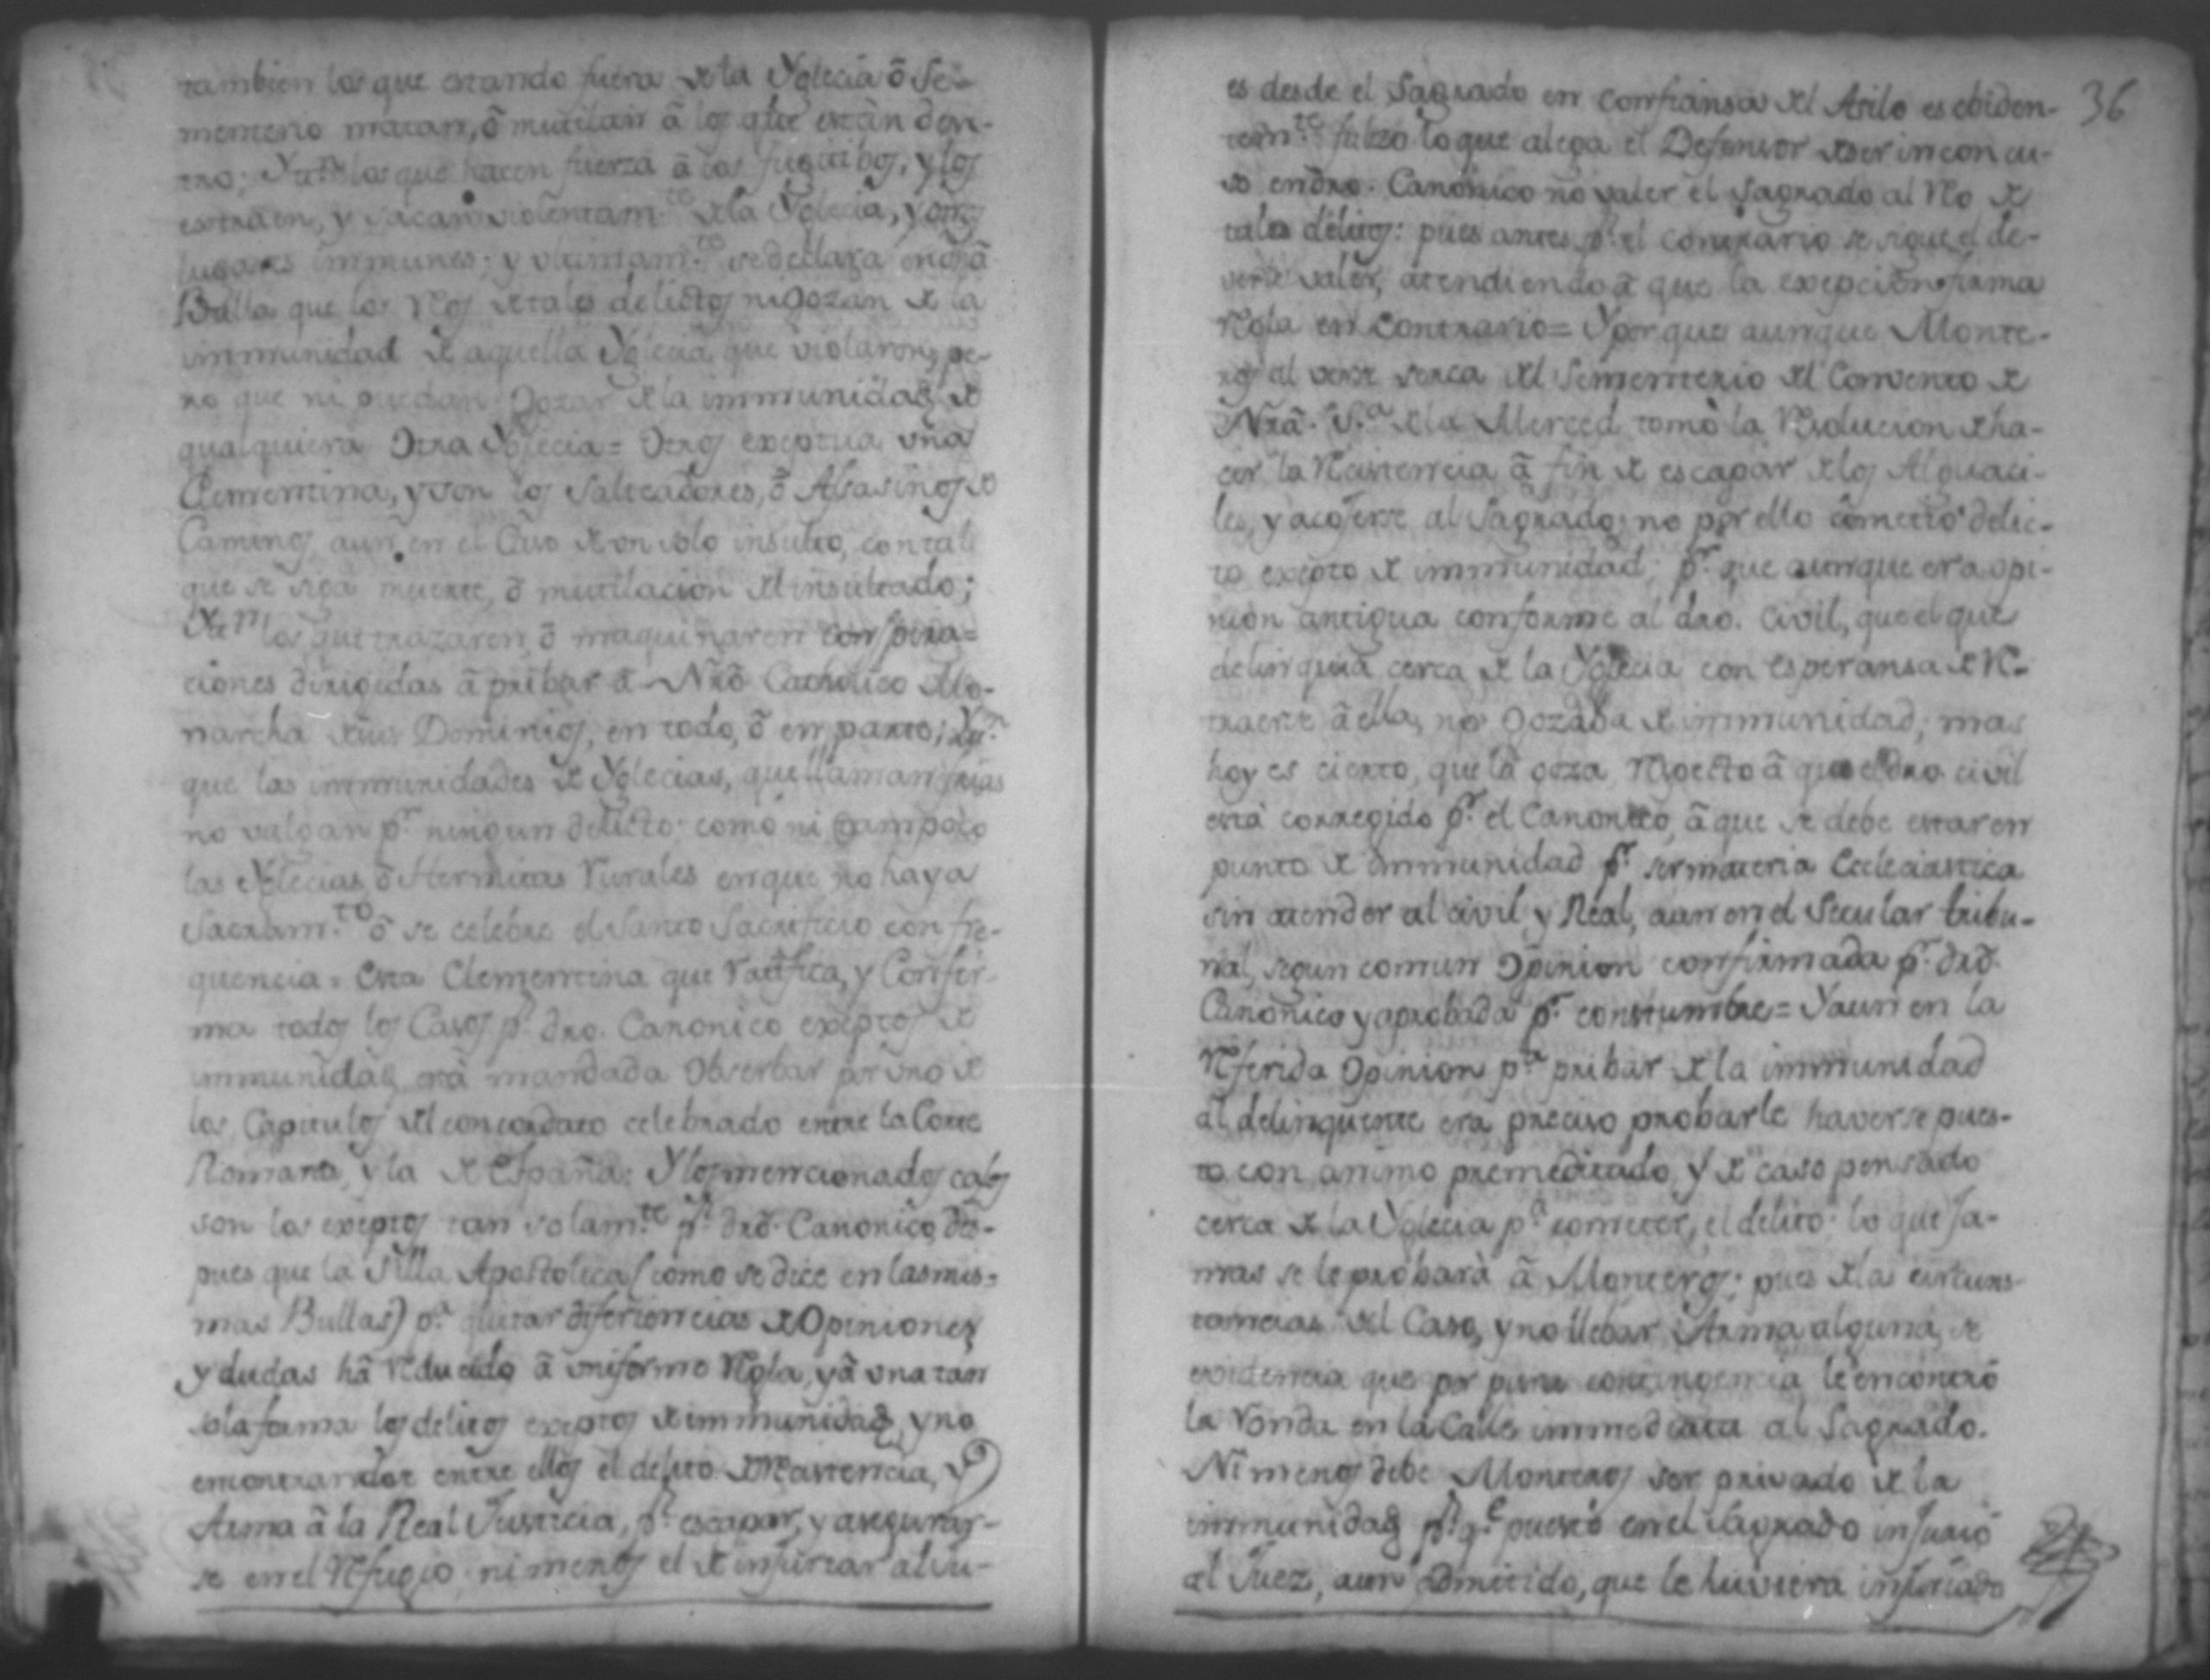 tambien los que estando fuera de la Yglecia ô Se-
menterio matan, ô mutilan â los que estàn den-
tro; Ytt.m los que hacen fuerza â los fugitibos, y los
estraen, y sacan violentam.te de la Yglecia, y otros
lugares immunes; y ultimam.te se declara en dhâ
Bulla que los Reos de tales delictos ni Gozan de la
immunidad de aquella Yglecia que violaron, pe-
ro que ni puedan Gozar de la immunidad de
qualquiera Otra Yglecia = Otros exeptua vña
Clementina, y son los Salteadores, ô Asasinos de
Caminos, aun en el Caso de un solo insulto, con tal
que se siga muerte, ô mutilacion del insultado;
Yt.m los que trazaren, ô maquinaren conspira=
ciones dirigidas â pribar â Nrô Catholico Mo-
narcha de sus Dominios, en todo, ô en parte; Yt.m
que las immunidades de Yglecias, que llaman frias
no valgan p.r ningun delicto: como ni tampoco
las Yglecias, ô Hermitas Rurales en que no haya
Sacram.to ô se celebre el Santo Sacrificio con fre-
quencia = Esta Clementina que ratifica, y Confir-
ma todos los Casos p.r dro. Canonico exeptos de
immunidad, està mandada Observar por uno de
los Capitulos del concordato celebrado entre la Corte
Romana, y la de España: Y los mencionados casos
son los exeptos tan solam.te p.r drô. Canonico, des-
pues que la Silla Apostolica (como se dice en las mis=
mas Bullas) p.a quitar diferiencias de Opiniones
y dudas hâ reducido â uniforme Regla, y â una tan
sola forma los delitos exeptos de immunidad, y no
encontrandose entre ellos el delito de Resistencia,
Arma â la Real Justicia, p.a escapar, y asegurar-
se en el Refugio: ni menos el de injuriar al Ju-
36
es desde el Sagrado en confiansa del Asilo es ebiden-
tem.te falzo lo que alega el Defensor de ser inconcu-
so en dro. Canonico no valer el Sagrado al Reo de
tales delitos: pues antes p.r el contrario se sigue el de-
verle valer, atendiendo â que la exepcion firma
Regla en Contrario = Y porque aunque Monte-
ros al verse serca del Sementerio del Convento de
Nrâ. S.a de la Merced tomò la Resolucion de ha-
cer la Resistencia â fin de escapar de los Alguaci-
les, y acojerse al Sagrado; no por ello cometio delic-
to exepto de immunidad; p.r que aunque era opi-
nion antigua conforme al dro. Civil, que el que
delinquia cerca de la Yglecia con esperansa de Re-
traerse â ella, no Gozaba de immunidad; mas
hoy es cierto, que la goza Respecto â que el dro. civil
està corregido p.r el Canonico, â que se debe estar en
punto de immunidad p.r ser materia Ecleciastica
sin atender al civil y Real, aun en el Secular tribu-
nal, segun comun Opinion confirmada p.r drô.
Canonico y aprobada p.r constumbre = Y aun en la
Referida Opinion p.a pribar de la immunidad
al delinquente era preciso probarle haverse pues-
to con animo premeditado, y de caso pensado
cerca de la Yglecia p.a cometer, el delito: lo que Ja-
mas se le probarà â Monteros; pues de las circuns-
tancias del Caso, y no llebar Arma alguna, se
evidencia que por pura contingencia le encontrò
la Ronda en la Calle immediata al Sagrado.
Ni menos debe Monteros ser privado de la
immunidad p.r q.e puesto en el Sagrado injuriò
al Juez, aun admitido, que le huviera injuriado